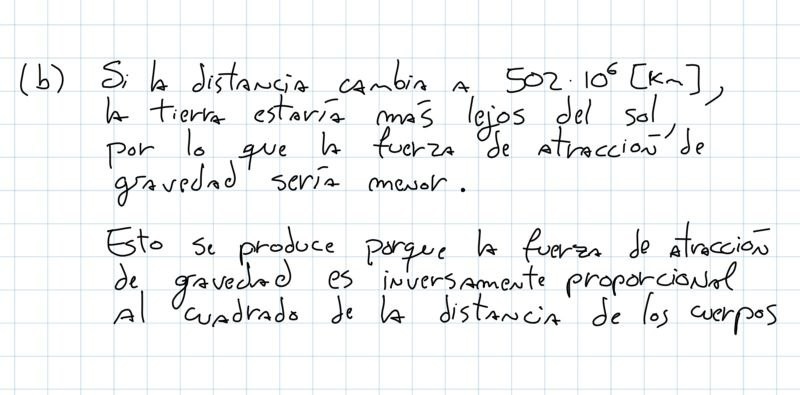 (b) Si la distancia cambia a 502·10⁶ [km],
la tierra estaría más lejos del sol,
por lo que la fuerza de atracción de
gravedad sería menor.
Esto se produce porque la fuerza de atracción
de gravedad es inversamente proporcional
al cuadrado de la distancia de los cuerpos